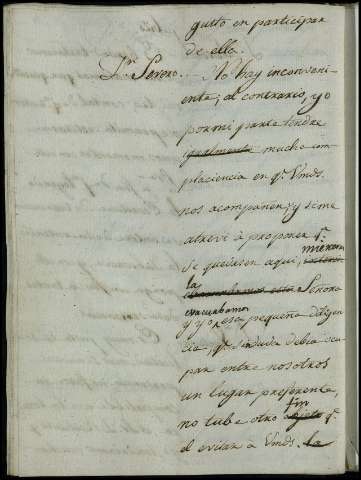 gusto en participar
de ella.
Dn. Severo.. No hay inconveni-
ente; al contrario, yo
por mi parte tendre
igualmente mucha com-
placiencia en q.e Vmds.
nos acompañen; y si me
atrevè à proponer q.e
se quedasen aquì, mientras
la Señora
evacuabamos
y yo esa pequeña diligen-
cia, q.e sin duda debia ocu-
par entre nosotros
un lugar preferente,
no tube otro fin q.e
el evitar à Vmds. la